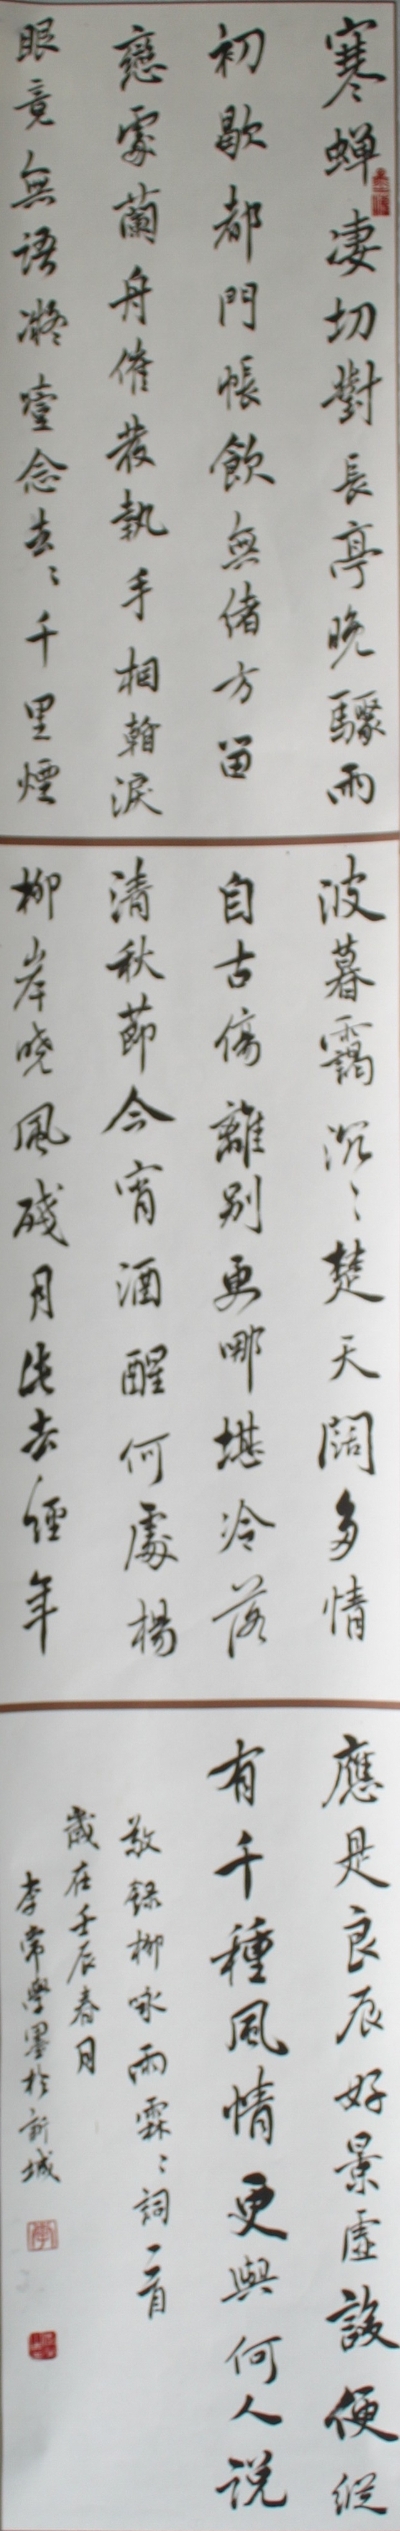 寒蟬凄切對長亭晚驟雨
初歇都門帳飲無緒方留
戀處蘭舟催發執手相看淚
眼竟無語凝噎念去〻千里煙
波暮靄沉〻楚天闊多情
自古傷離別更哪堪冷落
清秋節今宵酒醒何處楊
柳岸曉風殘月此去經年
應是良辰好景虛設便縱
有千種風情更與何人說
敬錄柳咏雨霖〻詞一首
歲在壬辰春月
李常學墨於新城